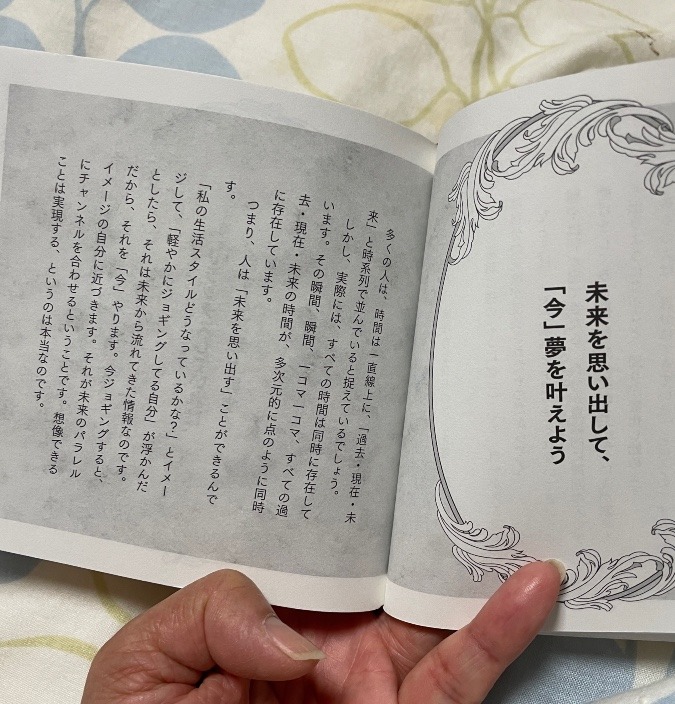 未来を思い出して、
「今」夢を叶えよう
多くの人は、時間は一直線上に、「過去・現在・未
来」と時系列で並んでいると捉えているでしょう。
しかし、実際には、すべての時間は同時に存在して
います。その瞬間、瞬間、一コマ一コマ、すべての過
去・現在・未来の時間が、多次元的に点のように同時
に存在しています。
つまり、人は「未来を思い出す」ことができるんで
す。
「私の生活スタイルどうなっているかな？」とイメー
ジして、「軽やかにジョギングしてる自分」が浮かんだ
としたら、それは未来から流れてきた情報なのです。
だから、それを「今」やります。今ジョギングすると、
イメージの自分に近づきます。それが未来のパラレル
にチャンネルを合わせるということです。想像できる
ことは実現する、というのは本当なのです。